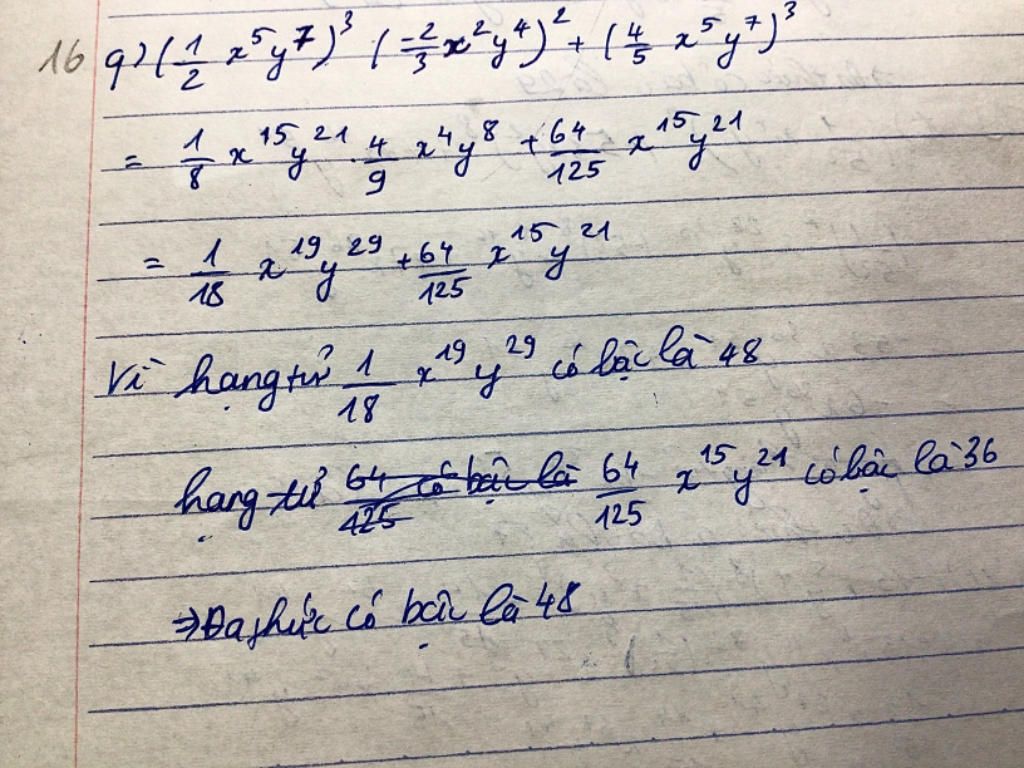 16 g) (1/2 x⁵y⁷)³ (-2/3 x²y⁴)² + (4/5 x⁵y⁷)³
= 1/8 x¹⁵y²¹ . 4/9 x⁴y⁸ + 64/125 x¹⁵y²¹
= 1/18 x¹⁹y²⁹ + 64/125 x¹⁵y²¹
Vì hạng tử 1/18 x¹⁹y²⁹ có bậc là 48
hạng tử 64/125 có bậc là 64/125 x¹⁵y²¹ có bậc là 36
⇒ Đa thức có bậc là 48